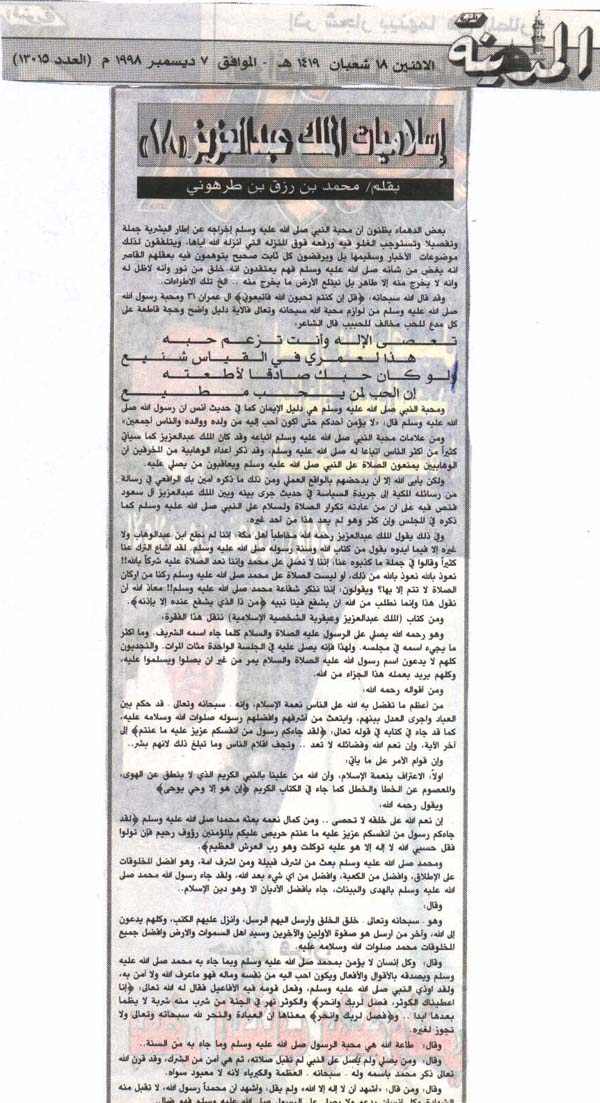 المدينة
الاثنين ١٨ شعبان ١٤١٩ هـ - الموافق ٧ ديسمبر ١٩٩٨ م (العدد ١٣٠١٥)
إسلاميات الملك عبدالعزيز «٢٨»
بقلم/ محمد بن رزق بن طرهوني
بعض الدهماء يظنون ان محبة النبي صلى الله عليه وسلم إخراجه عن إطار البشرية جملة
وتفصيلا وتستوجب الغلو فيه ورفعه فوق المنزلة التي انزله الله اياها، ويتلقفون لذلك
موضوعات الأخبار وسقيمها بل ويرفضون كل ثابت صحيح يتوهمون فيه بعقلهم القاصر
انه يغض من شأنه صلى الله عليه وسلم فهم يعتقدون انه خلق من نور وانه لاظل له
وانه لا يخرج منه إلا طاهر بل تبتلع الأرض ما يخرج منه .. الخ تلك الاطراءات.
وقد قال الله سبحانه: ﴿قل إن كنتم تحبون الله فاتبعوني﴾ ال عمران ٣١ ومحبة رسول الله
صلى الله عليه وسلم من لوازم محبة الله سبحانه وتعالى فالاية دليل واضح وحجة قاطعة على
كل مدع للحب مخالف للحبيب قال الشاعر:
تعصى الإله وأنت تزعم حبه
هذا لعمري في القياس شنيع
ولو كان حبك صادقا لأطعته
إن الحب لمن يحب مطيع
ومحبة النبي صلى الله عليه وسلم هي دليل الإيمان كما في حديث انس ان رسول الله صلى
الله عليه وسلم قال: «لا يؤمن أحدكم حتى أكون أحب إليه من ولده ووالده والناس أجمعين»
ومن علامات محبة النبي صلى الله عليه وسلم اتباعه وقد كان الملك عبدالعزيز كما سياتي
كثيراً من اكثر الناس اتباعا له صلى الله عليه وسلم، وقد ذكر أعداء الوهابية من المخرفين ان
الوهابيين يمنعون الصلاة على النبي صلى الله عليه وسلم ويعاقبون من يصلي عليه.
ولكن يابى الله إلا أن يدحضهم بالواقع العملي ومن ذلك ما ذكره امين بك الرافعي في رسالة
من رسائله المكية إلى جريدة السياسة في حديث جرى بينه وبين الملك عبدالعزيز آل سعود
فنص فيه على ان من عادته تكرار الصلاة والسلام على النبي صلى الله عليه وسلم كما
ذكره في المجلس وإن كثر وهو لم يعد هذا من احد غيره.
وفي ذلك يقول الملك عبدالعزيز رحمه الله مخاطباً اهل مكة: إننا لم نطع ابن عبدالوهاب ولا
غيره إلا فيما أيدوه بقول من كتاب الله وسنة رسوله صلى الله عليه وسلم. لقد أشاع الترك عنا
كثيراً وقالوا في جملة ما كذبوه عنا، إننا لا نصلي على محمد وإننا نعد الصلاة عليه شركاً بالله!!
نعوذ بالله نعوذ بالله من ذلك، أو ليست الصلاة على محمد صلى الله عليه وسلم ركنا من اركان
الصلاة لا تتم إلا بها؟ ويقولون: إننا ننكر شفاعة محمد صلى الله عليه وسلم!! معاذ الله أن
نقول هذا وإنما نطلب من الله أن يشفع فينا نبيه ﴿من ذا الذي يشفع عنده إلا بإذنه﴾.
ومن كتاب (الملك عبدالعزيز وعبقرية الشخصية الإسلامية) ننقل هذا الفقرة:
وهو رحمه الله يصلي على الرسول عليه الصلاة والسلام كلما جاء اسمه الشريف. وما اكثر
ما يجيء اسمه في مجلسه، ولهذا فإنه يصلي عليه في الجلسة الواحدة مئات المرات. والنجديون
كلهم لا يدعون اسم رسول الله عليه الصلاة والسلام يمر من غير ان يصلوا ويسلموا عليه،
وكلهم يريد بعمله هذا الجزاء من الله.
ومن اقواله رحمه الله:
من أعظم ما تفضل به الله على الناس نعمة الإسلام، وإنه . سبحانه وتعالى . قد حكم بين
العباد واجرى العدل بينهم، وابتعث من أشرفهم وافضلهم رسوله صلوات الله وسلامه عليه،
كما قد جاء في كتابه في قوله تعالى: ﴿لقد جاءكم رسول من انفسكم عزيز عليه ما عنتم﴾ إلى
آخر الآية، وإن نعم الله وفضائله لا تعد .. وتجف اقلام الناس وما تبلغ ذلك لانهم بشر..
وإن قوام الأمر على ما يأتي:
اولاً: الاعتراف بنعمة الإسلام، وأن الله من علينا بالنبي الكريم الذي لا ينطق عن الهوى،
والمعصوم عن الخطا والخطل كما جاء في الكتاب الكريم ﴿إن هو إلا وحي يوحى﴾
ويقول رحمه الله:
إن نعم الله على خلقه لا تحصى .. ومن كمال نعمه بعثه محمدا صلى الله عليه وسلم ﴿لقد
جاءكم رسول من انفسكم عزيز عليه ما عنتم حريص عليكم بالمؤمنين رؤوف رحيم فإن تولوا
فقل حسبي الله لا إله إلا هو عليه توكلت وهو رب العرش العظيم﴾.
ومحمد صلى الله عليه وسلم بعث من اشرف قبيلة ومن اشرف امة، وهو افضل المخلوقات
على الإطلاق، وافضل من الكعبة، وافضل من اي شيء بعد الله، ولقد جاء رسول الله محمد صلى
الله عليه وسلم بالهدى والبينات، جاء بأفضل الأديان الا وهو دين الإسلام..
وقال:
وهو . سبحانه وتعالى . خلق الخلق وارسل اليهم الرسل، وانزل عليهم الكتب، وكلهم يدعون
إلى الله، وآخر من ارسل هو صفوة الأولين والآخرين وسيد اهل السموات والارض وافضل جميع
المخلوقات محمد صلوات الله وسلامه عليه.
وقال: وكل إنسان لا يؤمن بمحمد صلى الله عليه وسلم وبما جاء به محمد صلى الله عليه
وسلم ويصدقه بالأقوال والأفعال ويكون احب اليه من نفسه وماله فهو ماعرف الله ولا آمن به،
ولقد اوذي النبي صلى الله عليه وسلم، وفعل قومه فيه الأفاعيل فقال له الله تعالى: ﴿إنا
اعطيناك الكوثر، فصل لربك وانحر﴾ والكوثر نهر في الجنة من شرب منه شربة لا يظمأ
بعدها ابدا .. و﴿فصل لربك وانحر﴾ معناها ان العبادة والنحر لله سبحانه وتعالى ولا
تجوز لغيره.
وقال: طاعة الله هي محبة الرسول صلى الله عليه وسلم وما جاء به من السنة..
وقال: ومن يصلي ولم يصل على النبي لم تقبل صلاته، ثم هي أمن من الشرك، وقد قرن الله
تعالى ذكر محمد باسمه وله . سبحانه . العظمة والكبرياء لأنه لا معبود سواه.
وقال: ومن قال: «اشهد ان لا إله إلا الله» ولم يقل: واشهد أن محمداً رسول الله، لا تقبل منه